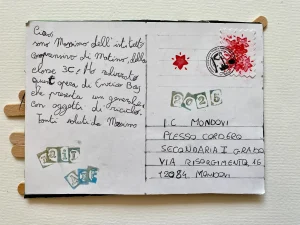 Ciao
sono Massimo dell'istituto
comprensivo di Matino, della
classe 3C. Ho realizzato
quest'opera di Enrico Baj
che presenta un generale
con oggetti di riciclo.
Tanti saluti da Massimo
MAIL
ART
2026
I.C MONDOVÌ
PLESSO CORDERO
SECONDARIA I GRADO
VIA RISORGIMENTO 16
12084 MONDOVÌ